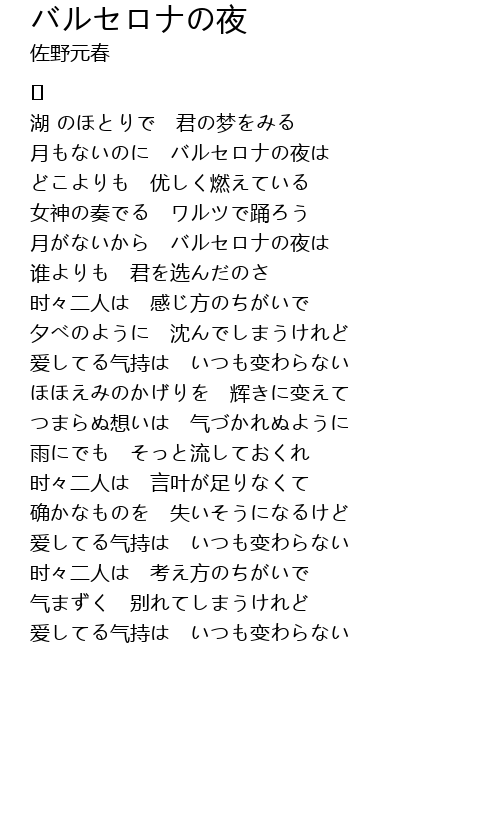 バルセロナの夜
佐野元春
湖 のほとりで　君の梦をみる
月もないのに　バルセロナの夜は
どこよりも　优しく燃えている
女神の奏でる　ワルツで踊ろう
月がないから　バルセロナの夜は
谁よりも　君を选んだのさ
时々二人は　感じ方のちがいで
夕べのように　沈んでしまうけれど
爱してる气持は　いつも变わらない
ほほえみのかげりを　辉きに变えて
つまらぬ想いは　气づかれぬように
雨にでも　そっと流しておくれ
时々二人は　言叶が足りなくて
确かなものを　失いそうになるけど
爱してる气持は　いつも变わらない
时々二人は　考え方のちがいで
气まずく　别れてしまうけれど
爱してる气持は　いつも变わらない